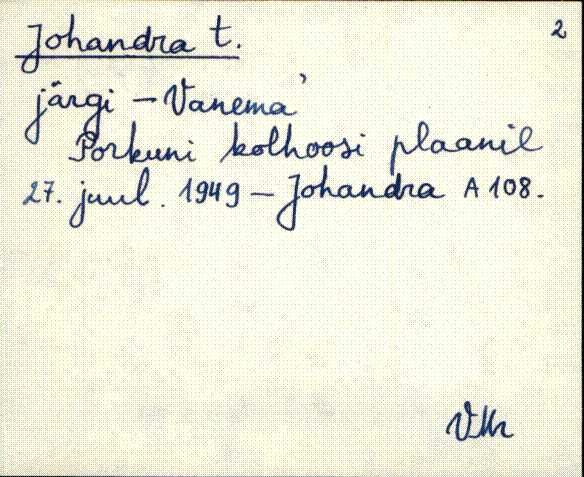 Johandra t. 2
järgi – Vanema'
Porkuni kolhoosi plaanil
27. juul. 1949 – Johandra A 108.